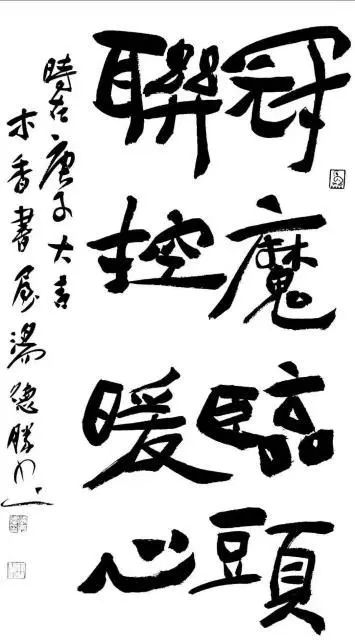 冠魔臨頭
聯控暖心
時在庚子大吉
木香書屋湯德勝书